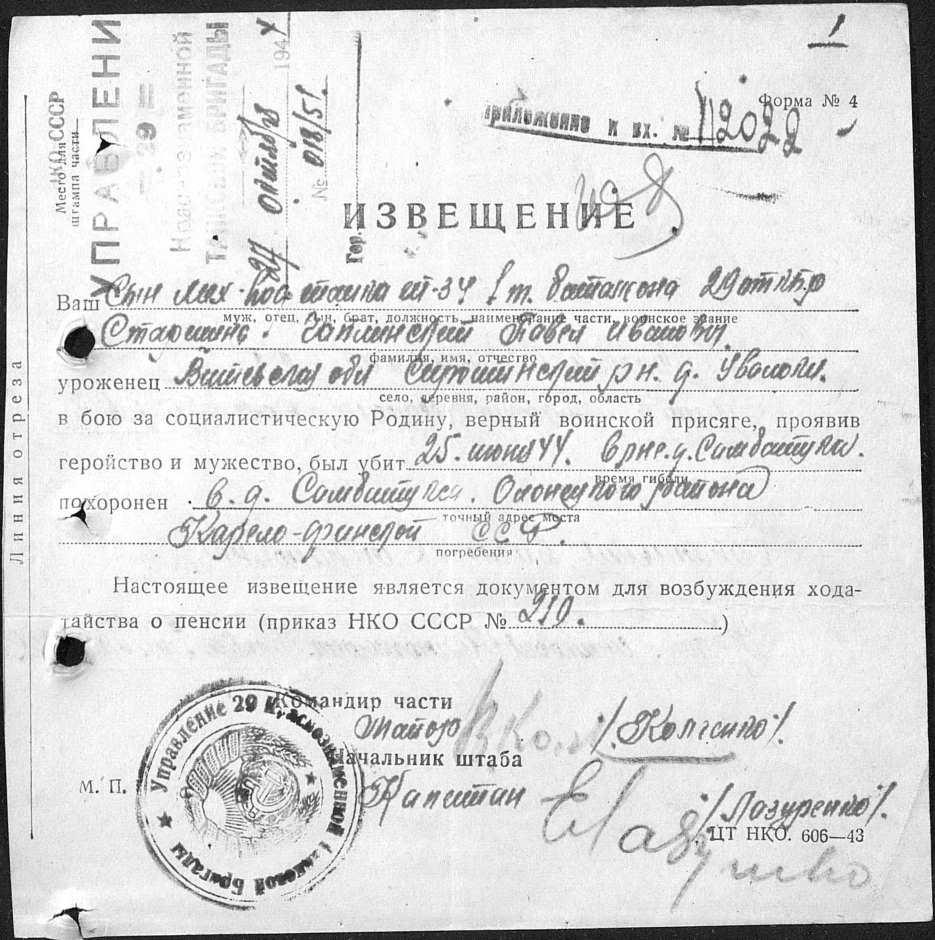 1
Форма № 4
НКО СССР
Место для
штампа части
УПРАВЛЕНИ
29
Краснознаменной
ТАНКОВОЙ БРИГАДЫ
27 октября 1944
№ 0181/51
Гор.
приложение к вх. № 112022
ИЗВЕЩЕНИЕ
Ваш Сын мех-вод танка т-34 1 т. батальона 29 отктбр
муж, отец, сын, брат, должность, наименование части, воинское звание
Старшина Павел Иванович
фамилия, имя, отчество
уроженец Витебская обл Сиротинский рн. д.
село, деревня, район, город, область
в бою за социалистическую Родину, верный воинской присяге, проявив
геройство и мужество, был убит 25. июня 44. в рне. д. Самбатукса.
время гибели
похоронен в. д. Самбатукса. Олонецкого района
точный адрес места
Карело-финской ССР.
погребения
Настоящее извещение является документом для возбуждения хода-
тайства о пенсии (приказ НКО СССР № 210.)
Линия отреза
Командир части
Майор
Начальник штаба
М. П.
Капитан /Лазуренко/.
ЦТ НКО. 606—43
Управление 29 Краснознаменной Танковой Бригады